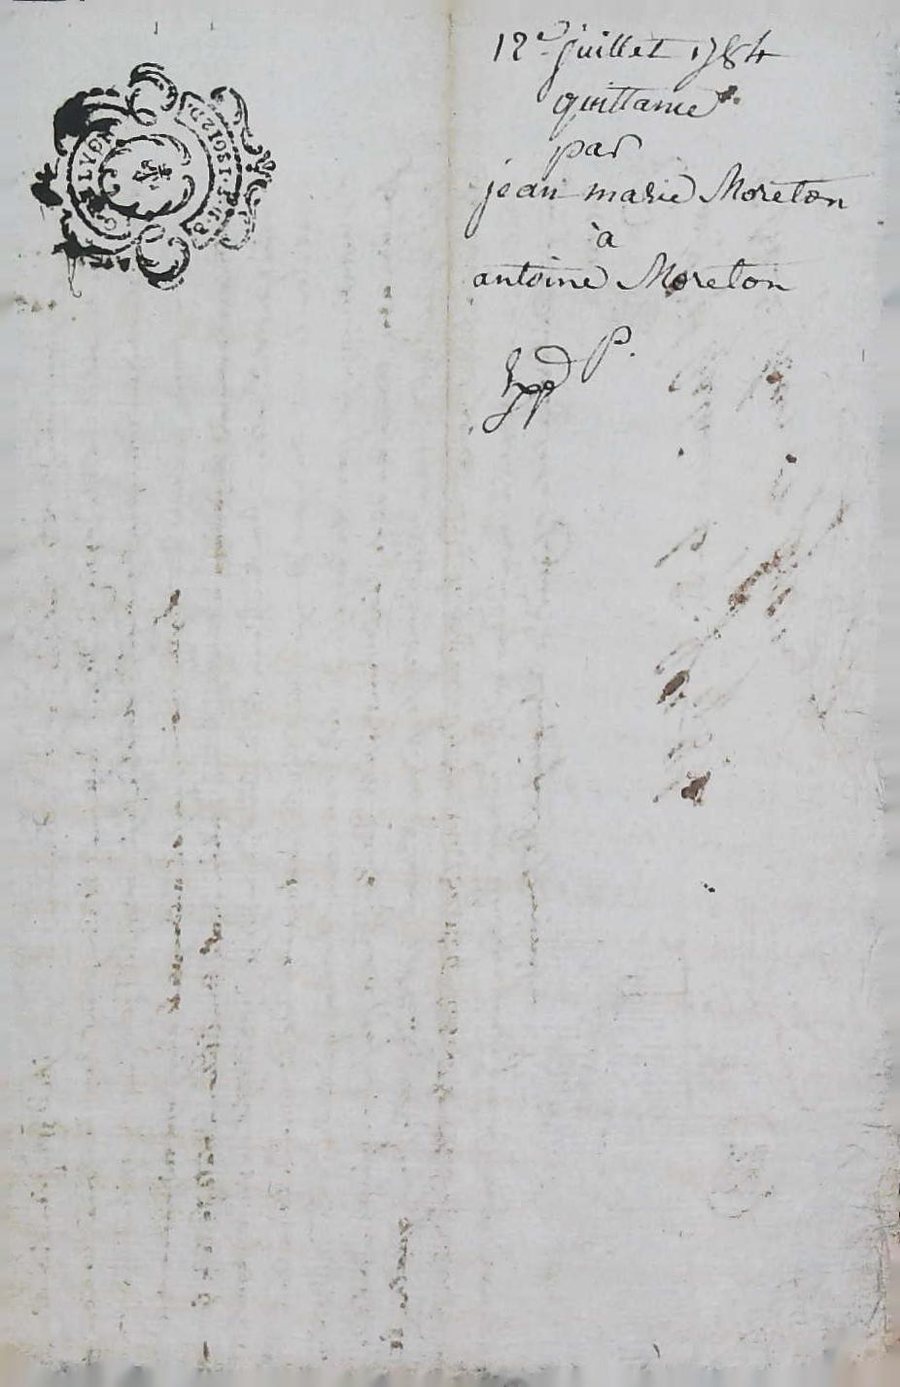 12e juillet 1784
quittance
par
jean marie Moreton
à
antoine Moreton
P.